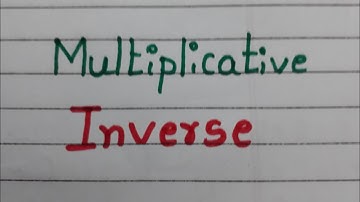 Multiplicative
Inverse